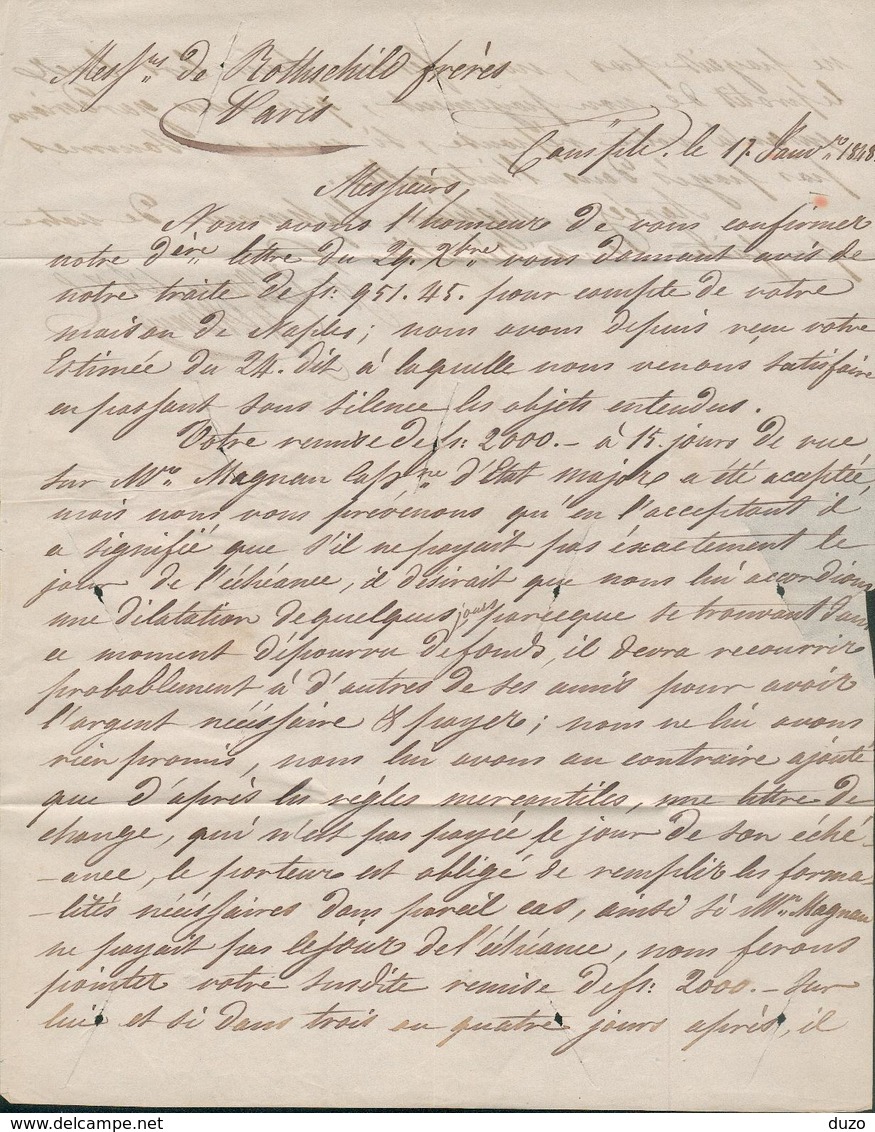 Mess.rs de Rothschild frères
Paris
Consple. le 17. Janv.ro 1848.
Messieurs,
Nous avons l'honneur de vous confirmer
notre dère lettre du 29. Xbre vous donnant avis de
notre traite de fs: 951.45. pour compte de votre
maison de Naples; nous avons depuis reçu votre
Estimée du 24. dit à laquelle nous venons satisfaire
en passant sous silence les objets entendus.
Votre remise de fs: 2000.- à 15. jours de vue
sur Mr. Magnan Capne d'Etat major a été acceptée,
mais nous vous prévenons qu'en l'acceptant il
a signifié que s'il ne payait pas éxactement le
jour de l'échéance, il désirait que nous lui accordions
une dilatation de quelques jours parceque se trouvant dans
ce moment dépourvu de fonds, il devra recourrir
probablement à d'autres de ses amis pour avoir
l'argent nécéssaire & payer; nous ne lui avons
rien promis, nous lui avons au contraire ajouté
que d'après les régles mercantiles, une lettre de
change, qui n'est pas payée le jour de son éché-
-ance, le porteur est obligé de remplir les forma-
-lités nécéssaires dans pareil cas, ainsi si Mr. Magnan
ne payait pas le jour de l'échéance, nous ferons
pointer votre susdite remise de fs: 2000.- sur
lui et si dans trois ou quatre jours après, il
delcampe.net
duzo